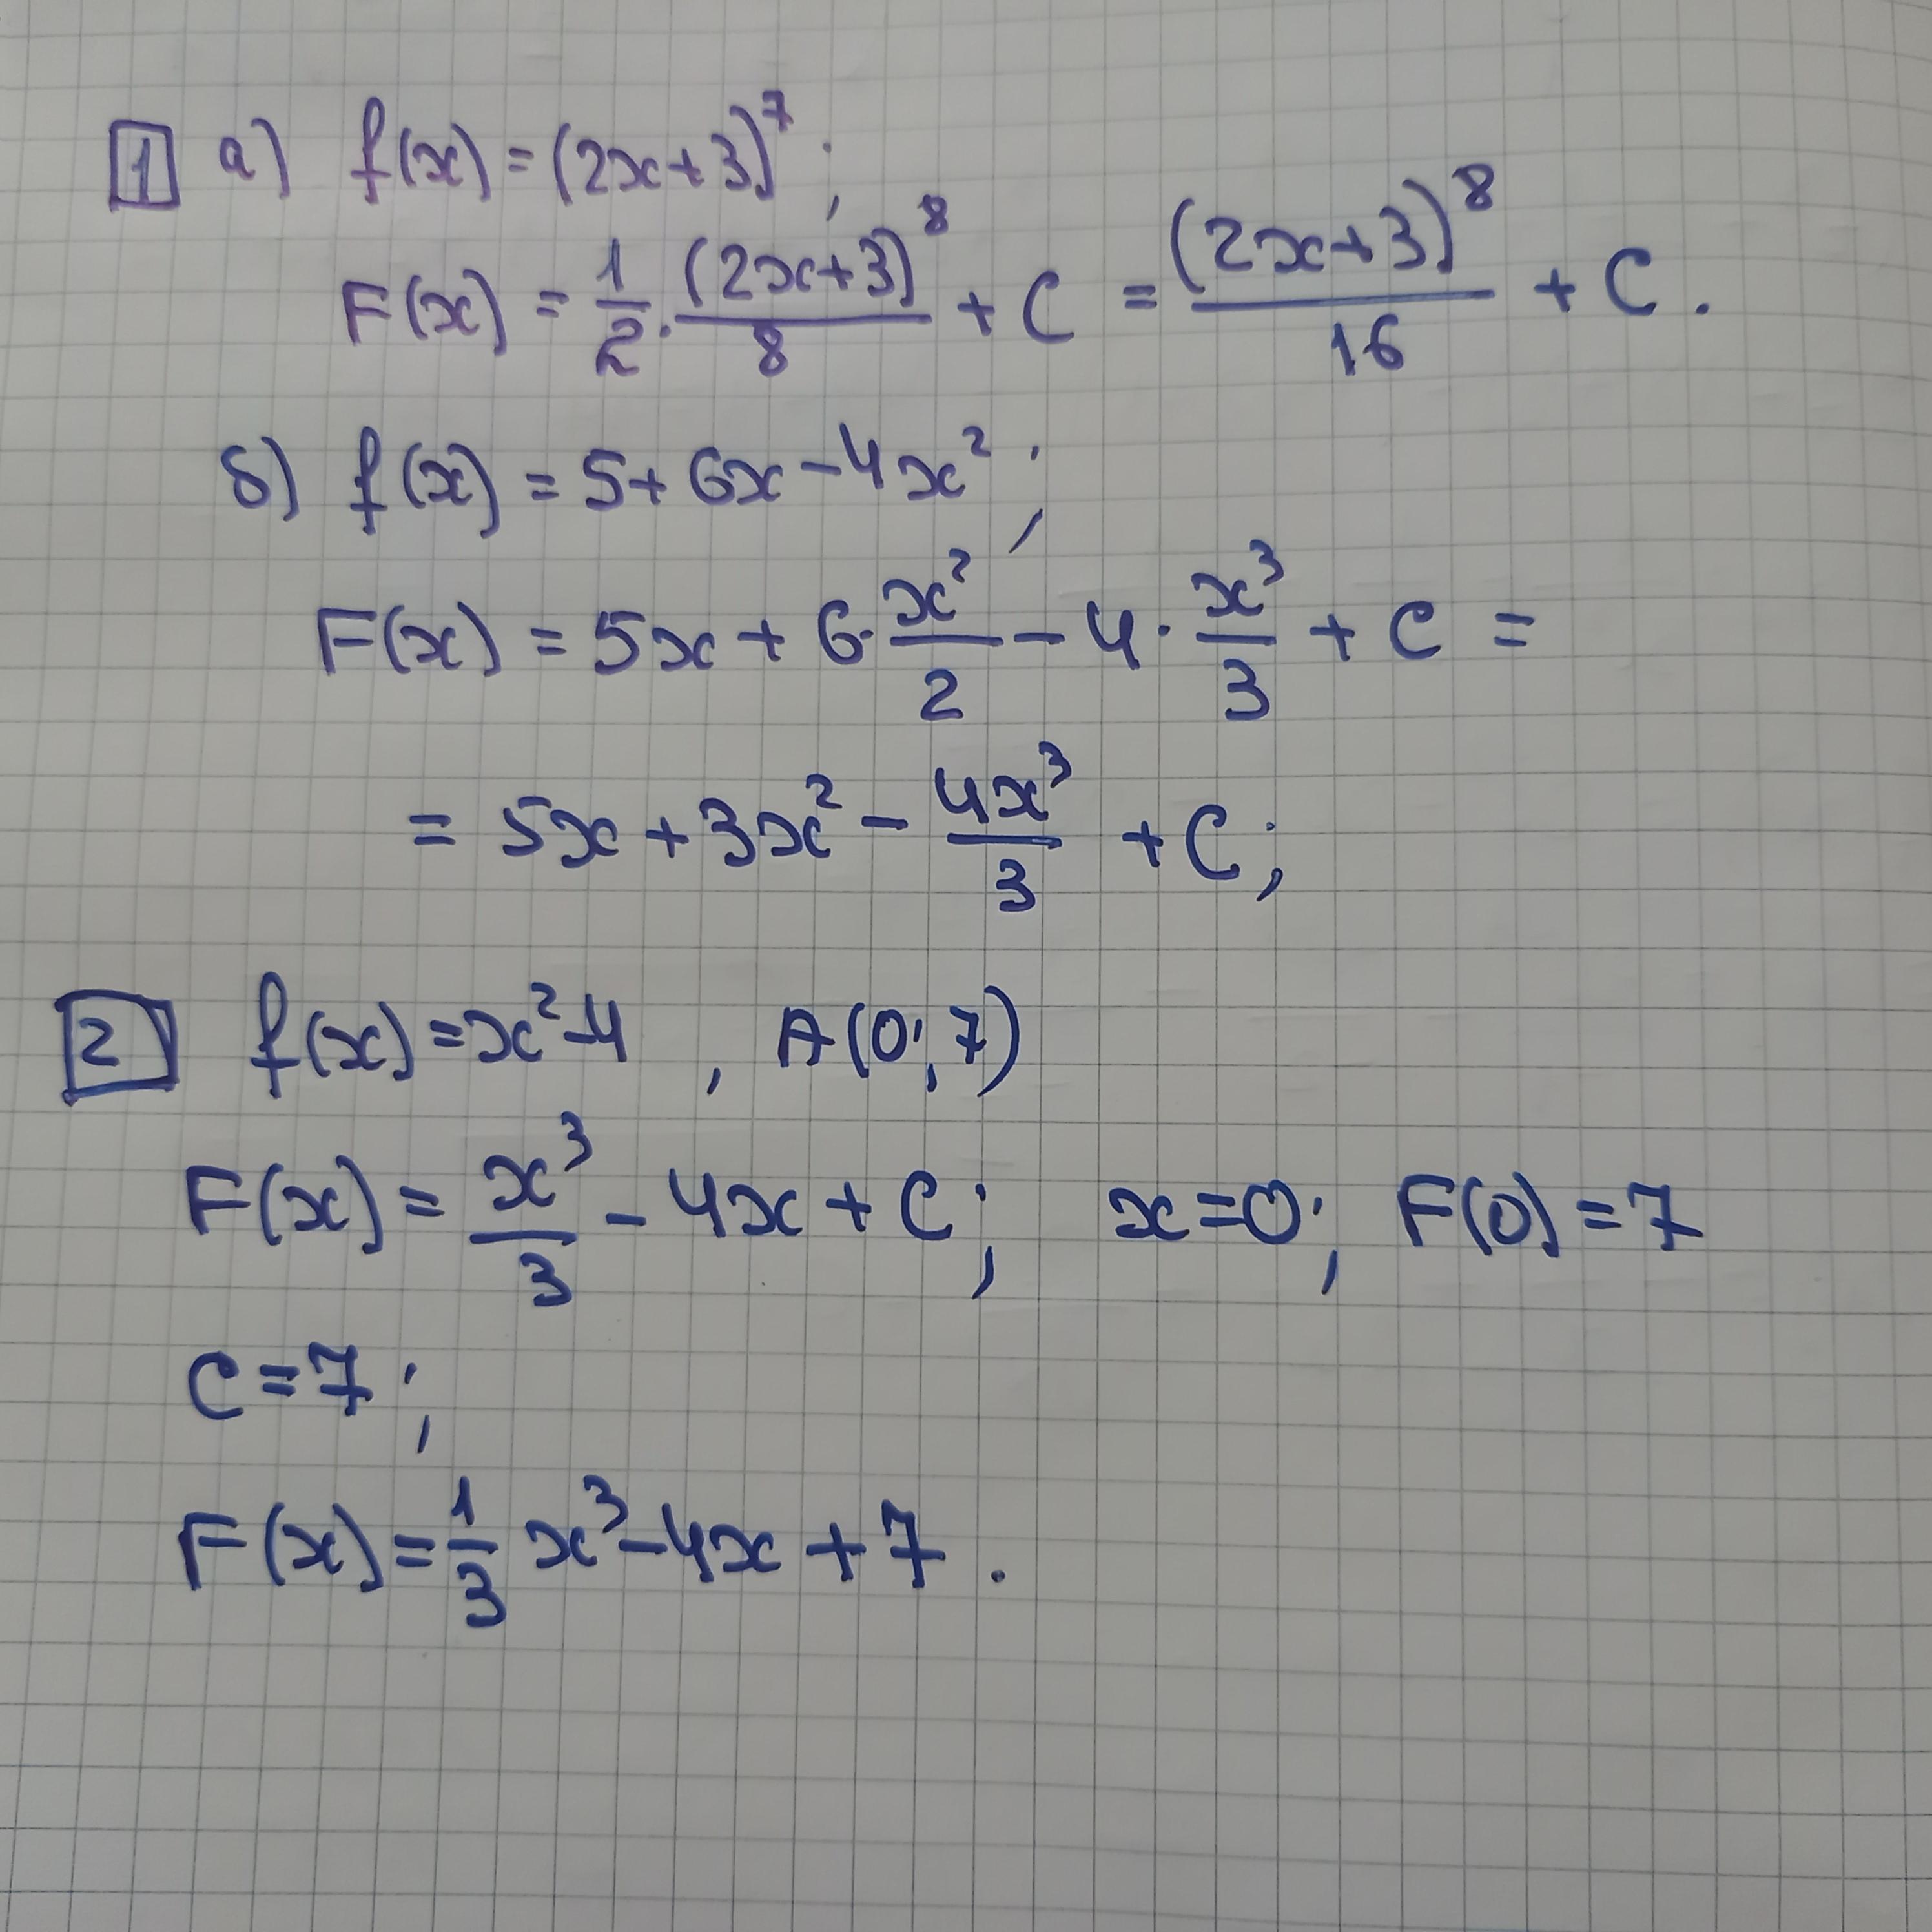 1 а) f(x) = (2x+3)^7;
F(x) = 1/2 · (2x+3)^8/8 + C = (2x+3)^8/16 + C.
б) f(x) = 5 + 6x - 4x²;
F(x) = 5x + 6 · x²/2 - 4 · x³/3 + C =
= 5x + 3x² - 4x³/3 + C;
2 f(x) = x² - 4, A(0; 7)
F(x) = x³/3 - 4x + C; x = 0; F(0) = 7
C = 7;
F(x) = 1/3 x³ - 4x + 7.